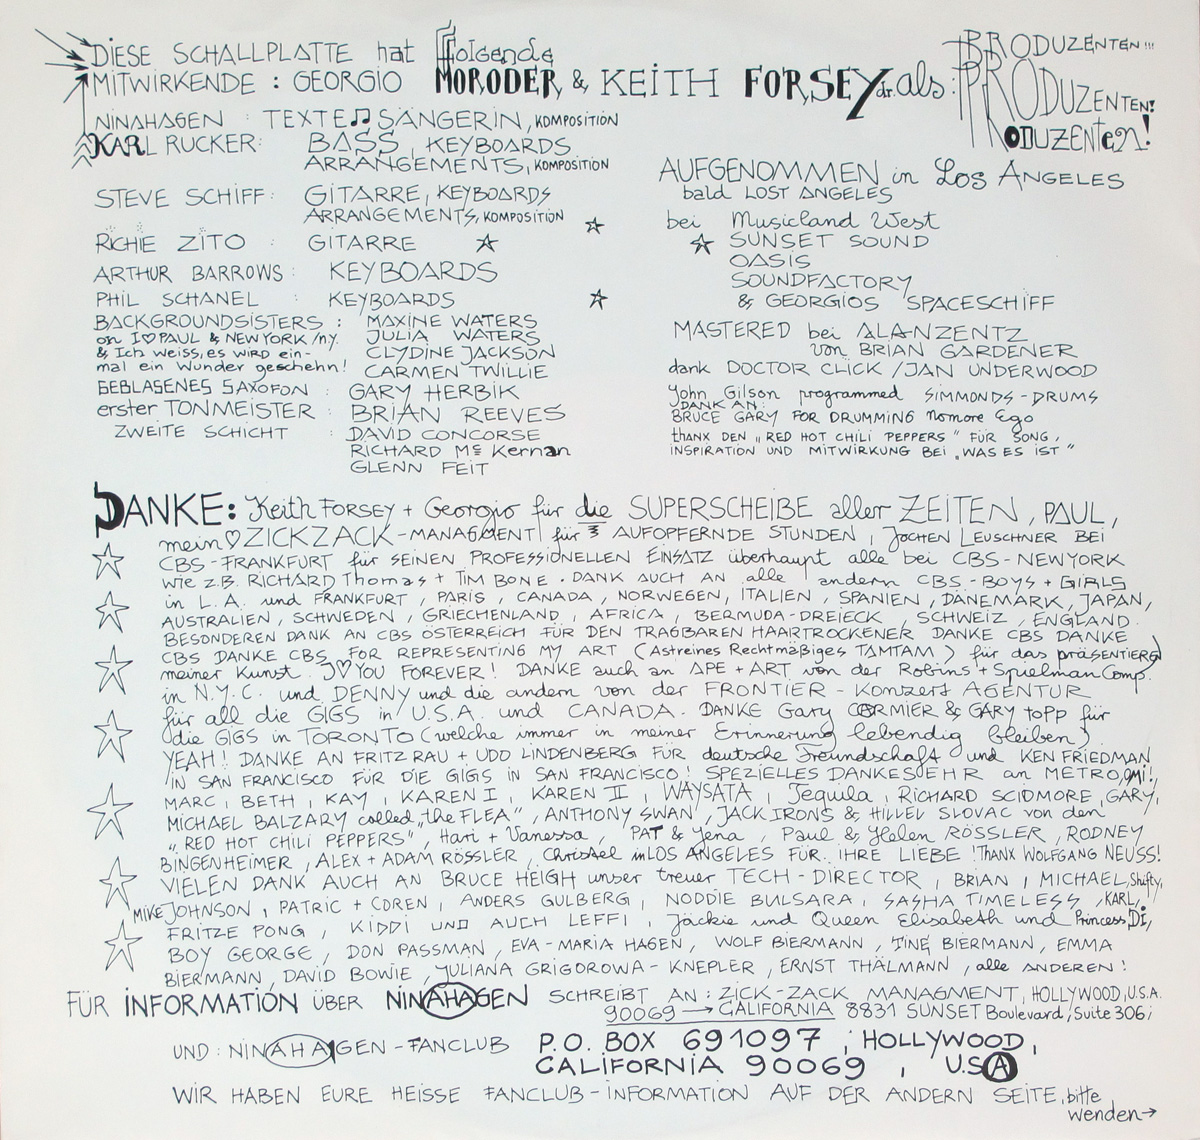 DIESE SCHALLPLATTE hat folgende
MITWIRKENDE : GEORGIO MORODER & KEITH FORSEY dr. als :
PRODUZENTEN!!!
PRODUZENTEN!
PRODUZENTEN!
NINAHAGEN : TEXTE♫SÄNGERIN, KOMPOSITION
KARL RUCKER: BASS, KEYBOARDS
ARRANGEMENTS, KOMPOSITION
STEVE SCHIFF: GITARRE, KEYBOARDS
ARRANGEMENTS, KOMPOSITION
RICHIE ZITO : GITARRE
ARTHUR BARROWS : KEYBOARDS
PHIL SCHANEL : KEYBOARDS
BACKGROUNDSISTERS : MAXINE WATERS
on I♡PAUL & NEWYORK/NY. JULIA WATERS
& Ich weiss, es wird ein- CLYDINE JACKSON
mal ein Wunder geschehn! CARMEN TWILLIE
GEBLASENES SAXOFON : GARY HERBIK
erster TONMEISTER : BRIAN REEVES
ZWEITE SCHICHT : DAVID CONCORSE
RICHARD Mc Kernan
GLENN FEIT
AUFGENOMMEN in Los ANGELES
bald LOST ANGELES
bei Musicland West
SUNSET SOUND
OASIS
SOUNDFACTORY
& GEORGIOS SPACESCHIFF
MASTERED bei ALANZENTZ
von BRIAN GARDENER
dank DOCTOR CLICK /JAN UNDERWOOD
John Gilson programmed SIMMONDS-DRUMS
DANK AN:
BRUCE GARY FOR DRUMMING Nomore Ego
thanx DEN „RED HOT CHILI PEPPERS" FÜR SONG,
INSPIRATION UND MITWIRKUNG BEI „WAS ES IST"
DANKE: Keith FORSEY + Georgio für die SUPERSCHEIBE aller ZEITEN, PAUL,
mein♡ZICKZACK-MANAGMENT für 3 AUFOPFERNDE STUNDEN, JOCHEN LEUSCHNER BEI
CBS-FRANKFURT für SEINEN PROFESSIONELLEN EINSATZ überhaupt alle bei CBS-NEWYORK
wie z.B. RICHARD Thomas + TIM BONE. DANK AUCH AN alle andern CBS-BOYS + GIRLS
in L.A. und FRANKFURT, PARIS, CANADA, NORWEGEN, ITALIEN, SPANIEN, DÄNEMARK, JAPAN,
AUSTRALIEN, SCHWEDEN, GRIECHENLAND, AFRICA, BERMUDA-DREIECK, SCHWEIZ, ENGLAND.
BESONDEREN DANK AN CBS ÖSTERREICH FÜR DEN TRAGBAREN HAARTROCKENER DANKE CBS DANKE
CBS DANKE CBS FOR REPRESENTING MY ART (Astreines Rechtmäßiges TAMTAM) für das präSENTIEREN
meiner Kunst. I♡YOU FOREVER! DANKE auch an APE + ART von der Robins + Spielman Comp.
in N.Y.C. und DENNY und die andern von der FRONTIER - Konzert AGENTUR
für all die GIGS in U.S.A. und CANADA. DANKE Gary CORMIER & GARY TOPP für
die GIGS in TORONTO (welche immer in meiner Erinnerung lebendig bleiben)
YEAH! DANKE AN FRITZ RAU + UDO LINDENBERG FÜR deutsche Freundschaft und KEN FRIEDMAN
IN SAN FRANCISCO FÜR DIE GIGS IN SAN FRANCISCO! SPEZIELLES DANKESEHR an METRO,
MARC, BETH, KAY, KAREN I, KAREN II, WAYSATA, Tequila, RICHARD SCIDMORE, GARY,
MICHAEL BALZARY called „the FLEA", ANTHONY SWAN, JACK IRONS & HILLEL SLOVAC von den
„RED HOT CHILI PEPPERS", Hari + Vanessa, PAT & Yena, Paul & Helen RÖSSLER, RODNEY
BINGENHEIMER, ALEX + ADAM RÖSSLER, Christel in LOS ANGELES FÜR IHRE LIEBE! THANX WOLFGANG NEUSS!
VIELEN DANK AUCH AN BRUCE HEIGH unser treuer TECH-DIRECTOR, BRIAN, MICHAEL, Shifty,
MIKE JOHNSON, PATRIC + COREN, ANDERS GULBERG, NODDIE BULSARA, SASHA TIMELESS, KARL,
FRITZE PONG, KIDDI UND AUCH LEFFI, Jackie und Queen Elisabeth und Princess Di,
BOY GEORGE, DON PASSMAN, EVA-MARIA HAGEN, WOLF BIERMANN, TINE BIERMANN, EMMA
BIERMANN, DAVID BOWIE, JULIANA GRIGOROWA-KNEPLER, ERNST THÄLMANN, alle ANDEREN!
FÜR INFORMATION ÜBER NINAHAGEN SCHREIBT AN: ZICK-ZACK MANAGMENT, HOLLYWOOD, U.S.A.
90069 → CALIFORNIA 8831 SUNSET Boulevard, Suite 306;
UND: NINAHAGEN-FANCLUB P.O. BOX 691097; HOLLYWOOD,
CALIFORNIA 90069, U.S.A
WIR HABEN EURE HEISSE FANCLUB-INFORMATION AUF DER ANDERN SEITE, bitte
wenden→